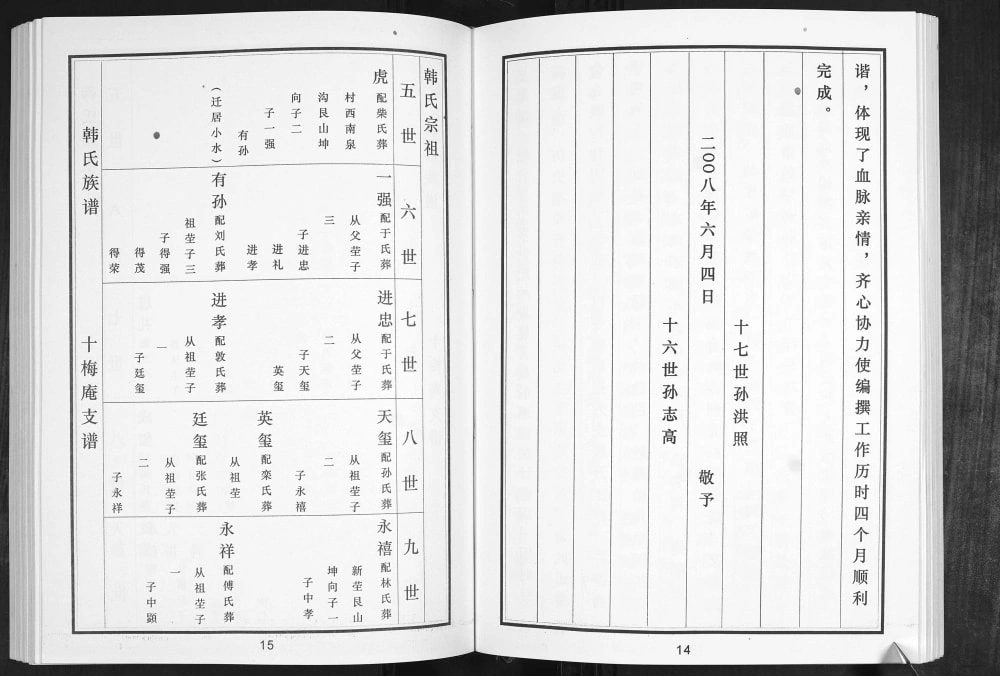 谐，体现了血脉亲情，齐心协力使编撰工作历时四个月顺利
完成。
十七世孙洪照
二〇〇八年六月四日
敬予
十六世孙志高
14
韩氏宗祖
五世
虎配柴氏葬
村西南泉
沟艮山坤
向子二
子一强
有孙
（迁居小水）
六世
一强配于氏葬
从父茔子
三
子进忠
进礼
进孝
有孙配刘氏葬
祖茔子三
子得强
得茂
得荣
七世
进忠配于氏葬
从父茔子
二
子天玺
英玺
进孝配敦氏葬
从祖茔子
一
子廷玺
八世
天玺配孙氏葬
从祖茔子
二
子永禧
英玺配栾氏葬
从祖茔
廷玺配张氏葬
从祖茔子
二
子永祥
九世
永禧配林氏葬
新茔艮山
坤向子一
子中孝
永祥配傅氏葬
从祖茔子
一
子中顕
韩氏族谱
十梅庵支谱
15